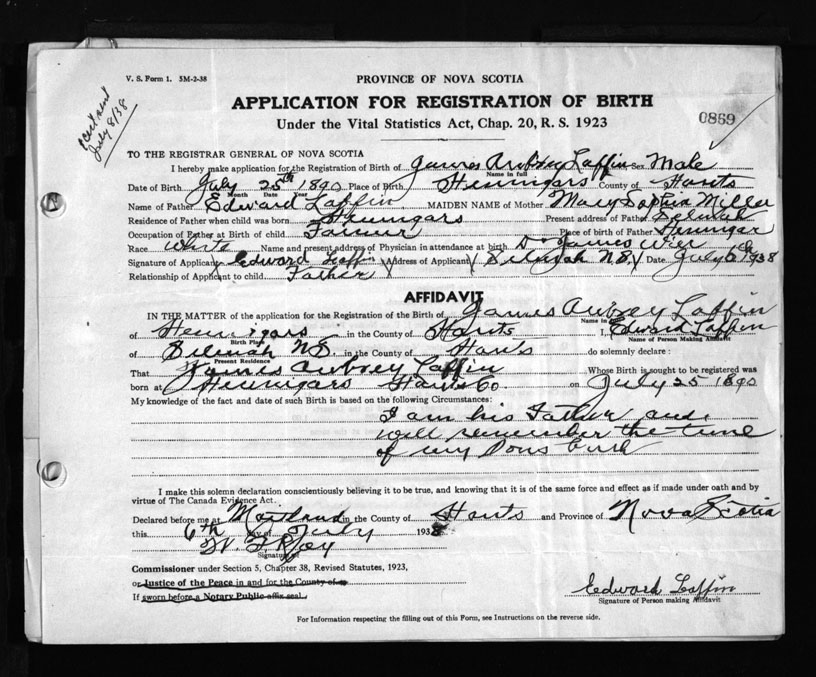 V. S. Form 1. 5M-2-38
PROVINCE OF NOVA SCOTIA
sent
July 8/38
APPLICATION FOR REGISTRATION OF BIRTH
0869
Under the Vital Statistics Act, Chap. 20, R. S. 1923
TO THE REGISTRAR GENERAL OF NOVA SCOTIA
I hereby make application for the Registration of Birth of James Aubrey Laffin Sex Male
Name in full
Date of Birth July 25th 1890 Place of Birth Hennigars County of Hants
Month Date Year
Name of Father Edward Laffin MAIDEN NAME of Mother Mary Sophia Miller
Residence of Father when child was born Hennigars Present address of Father Selmah
Occupation of Father at Birth of child Farmer Place of birth of Father Hennigar
Race White Name and present address of Physician in attendance at birth Dr James Wier
Signature of Applicant Edward Laffin Address of Applicant Selmah N.S. Date July 6th 1938
Relationship of Applicant to child Father
AFFIDAVIT
IN THE MATTER of the application for the Registration of the Birth of James Aubrey Laffin
Name in
of Hennigars in the County of Hants I, Edward Laffin
Birth Place Name of Person Making Affidavit
of Selmah N.S. in the County of Hants do solemnly declare:
Present Residence
That James Aubrey Laffin Whose Birth is sought to be registered was
born at Hennigars Hants Co. on July 25 1890
My knowledge of the fact and date of such Birth is based on the following Circumstances:
I am his Father and
well remember the time
of my Sons birth
I make this solemn declaration conscientiously believing it to be true, and knowing that it is of the same force and effect as if made under oath and by
virtue of The Canada Evidence Act.
Declared before me at Maitland in the County of Hants and Province of Nova Scotia
this 6th day of July 1938
Signature
Commissioner under Section 5, Chapter 38, Revised Statutes, 1923,
or Justice of the Peace in and for the County of
If sworn before a Notary Public affix seal.
Edward Laffin
Signature of Person making Affidavit
For Information respecting the filling out of this Form, see Instructions on the reverse side.